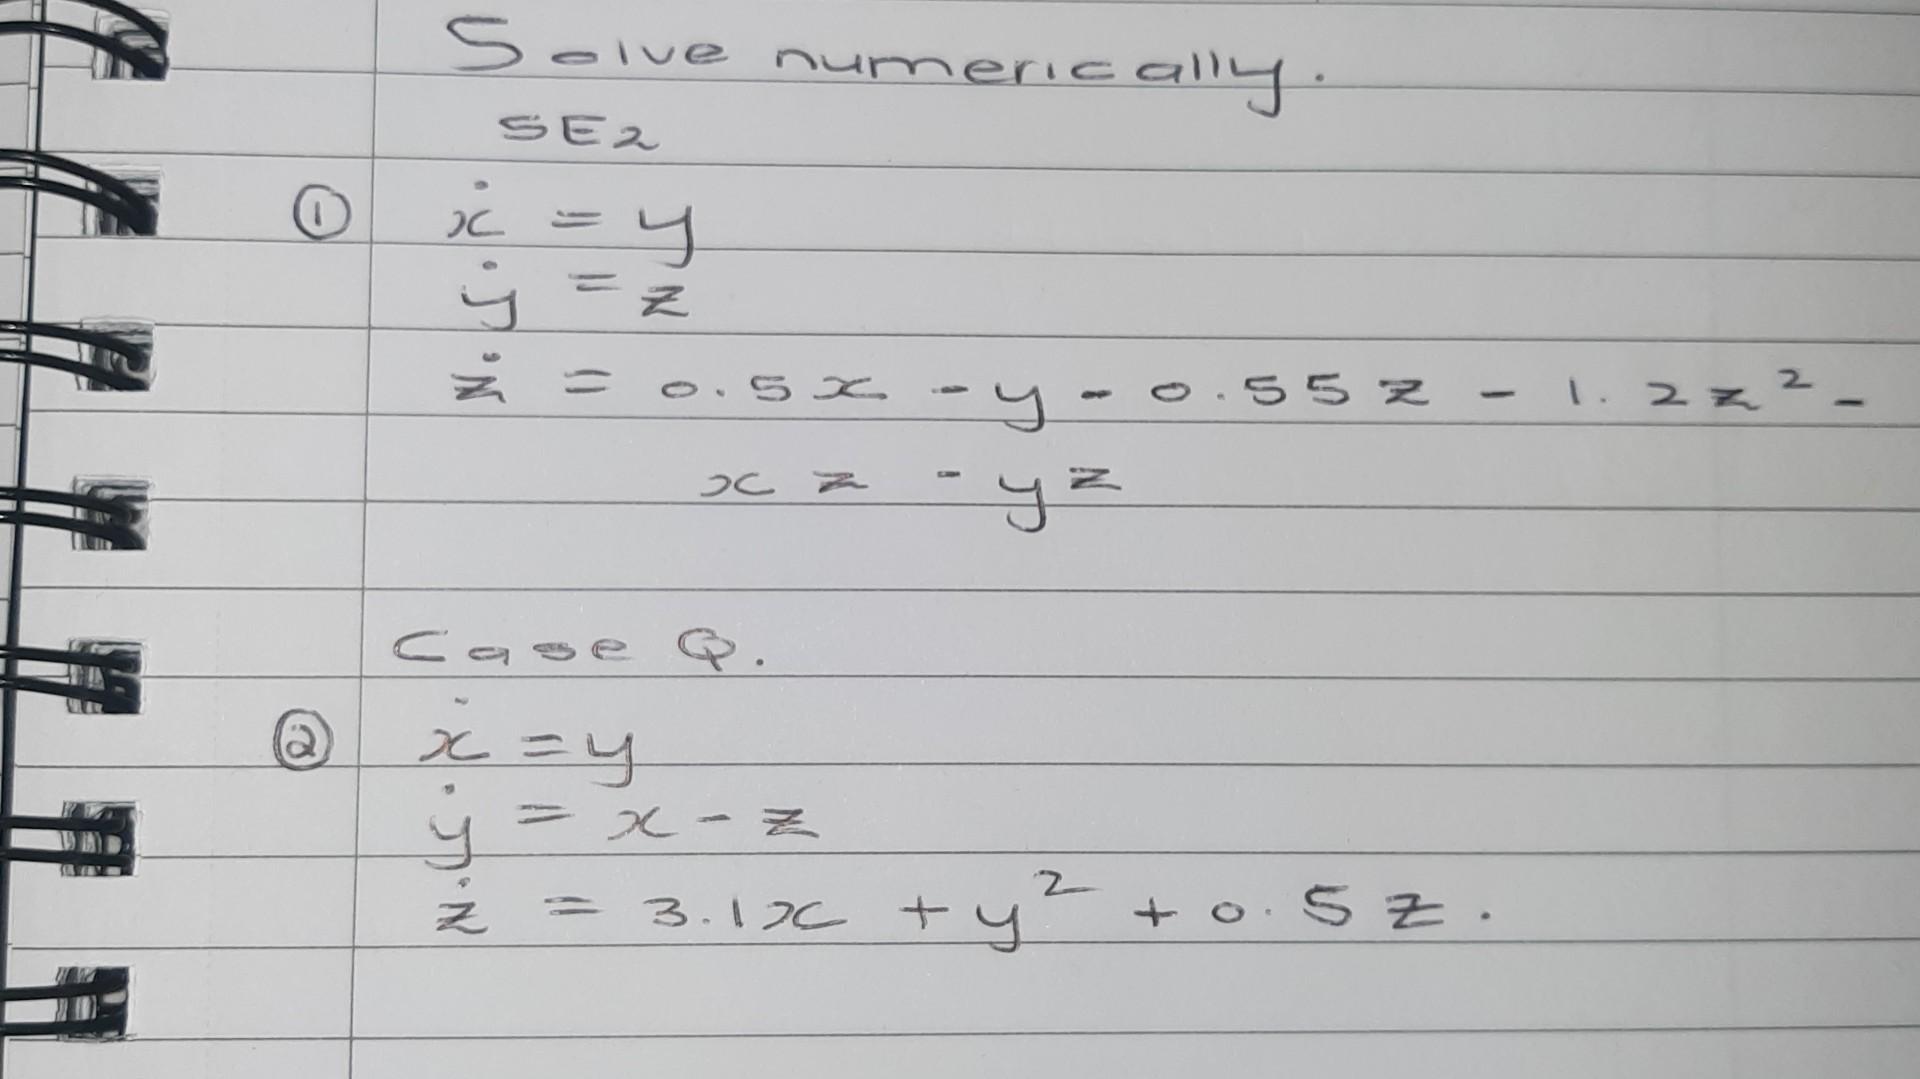 Solve numerically.
SE2
① ẋ = y
ẏ = z
ż = 0.5x - y - 0.55z - 1.2z² -
xz - yz
Case Q.
② ẋ = y
ẏ = x - z
ż = 3.1x + y² + 0.5z.